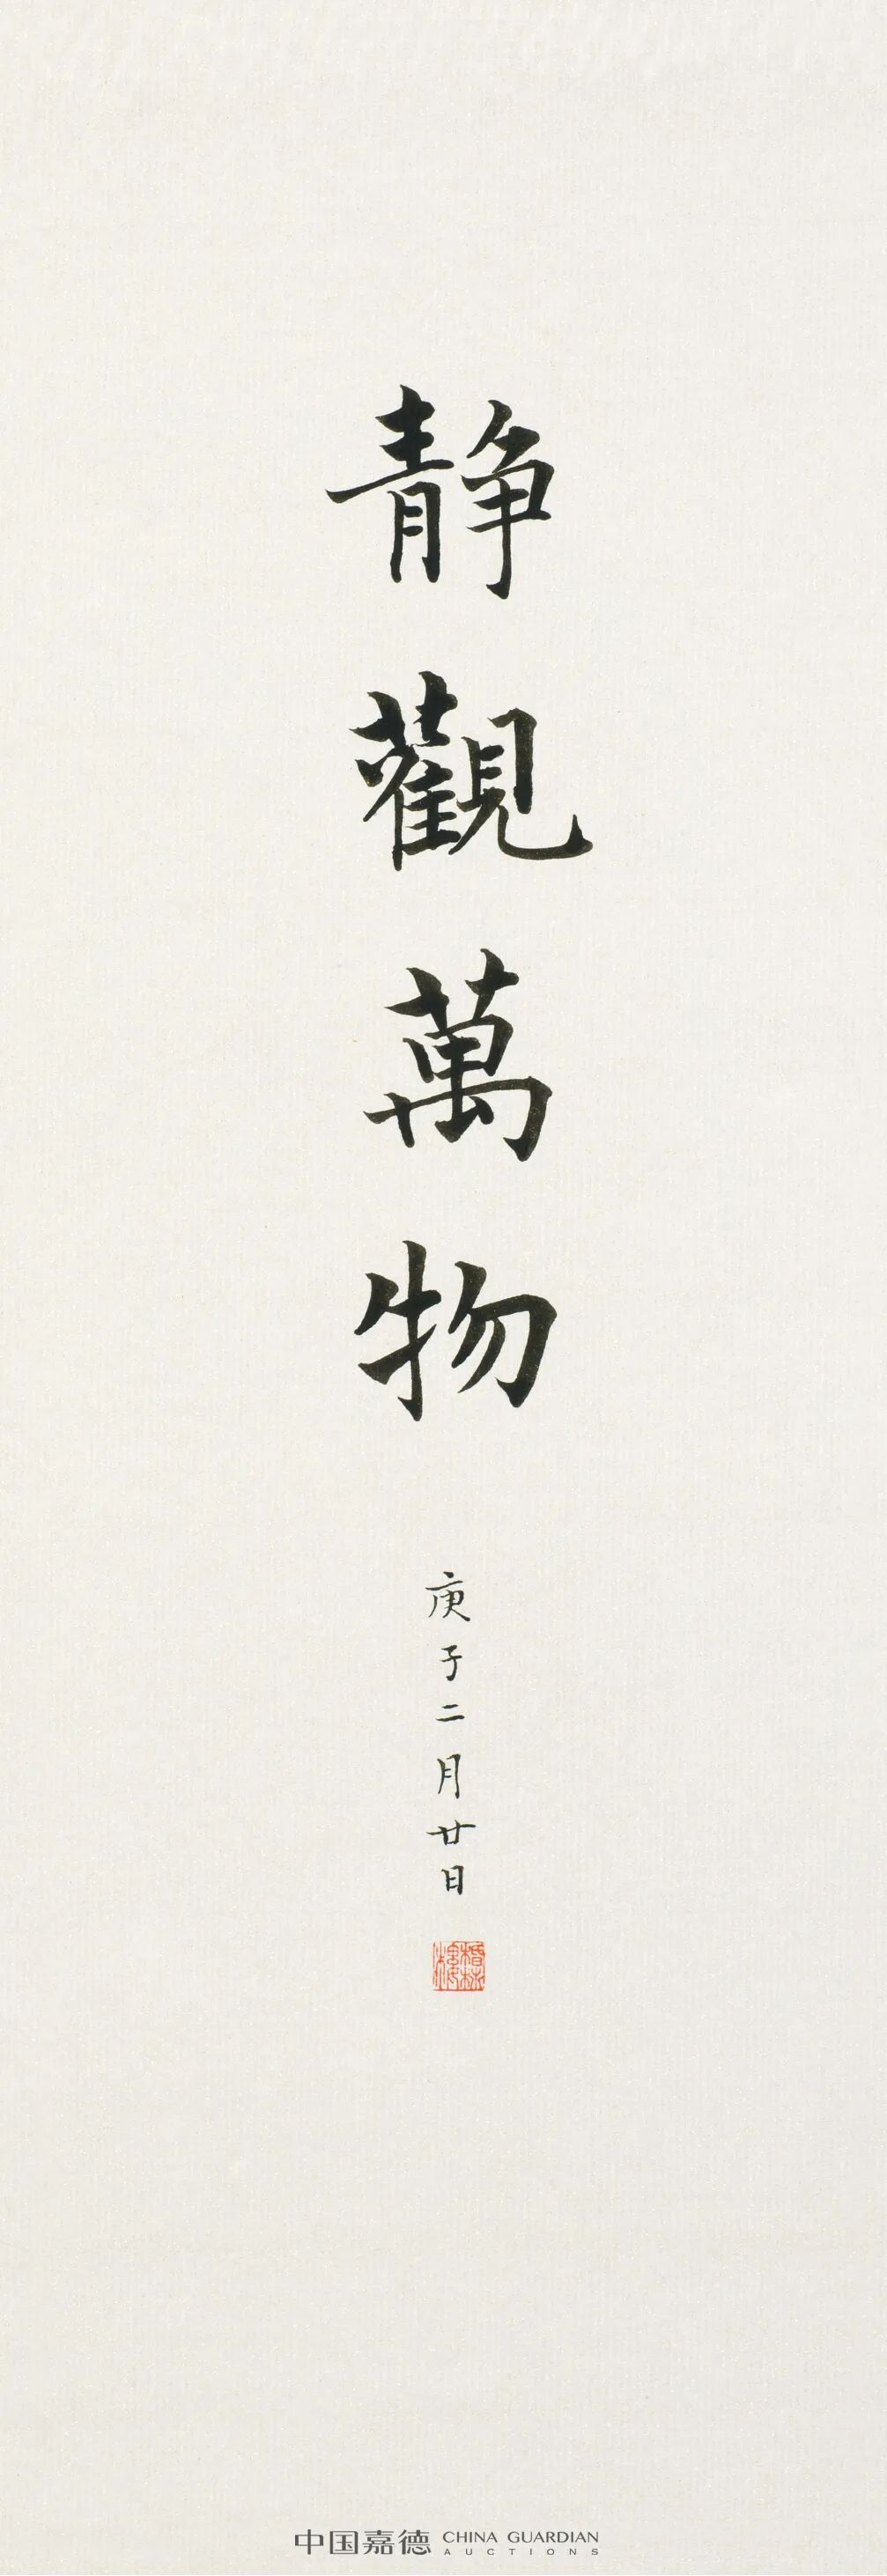 静觀萬物
庚子二月廿日
中国嘉德 CHINA GUARDIAN
AUCTIONS